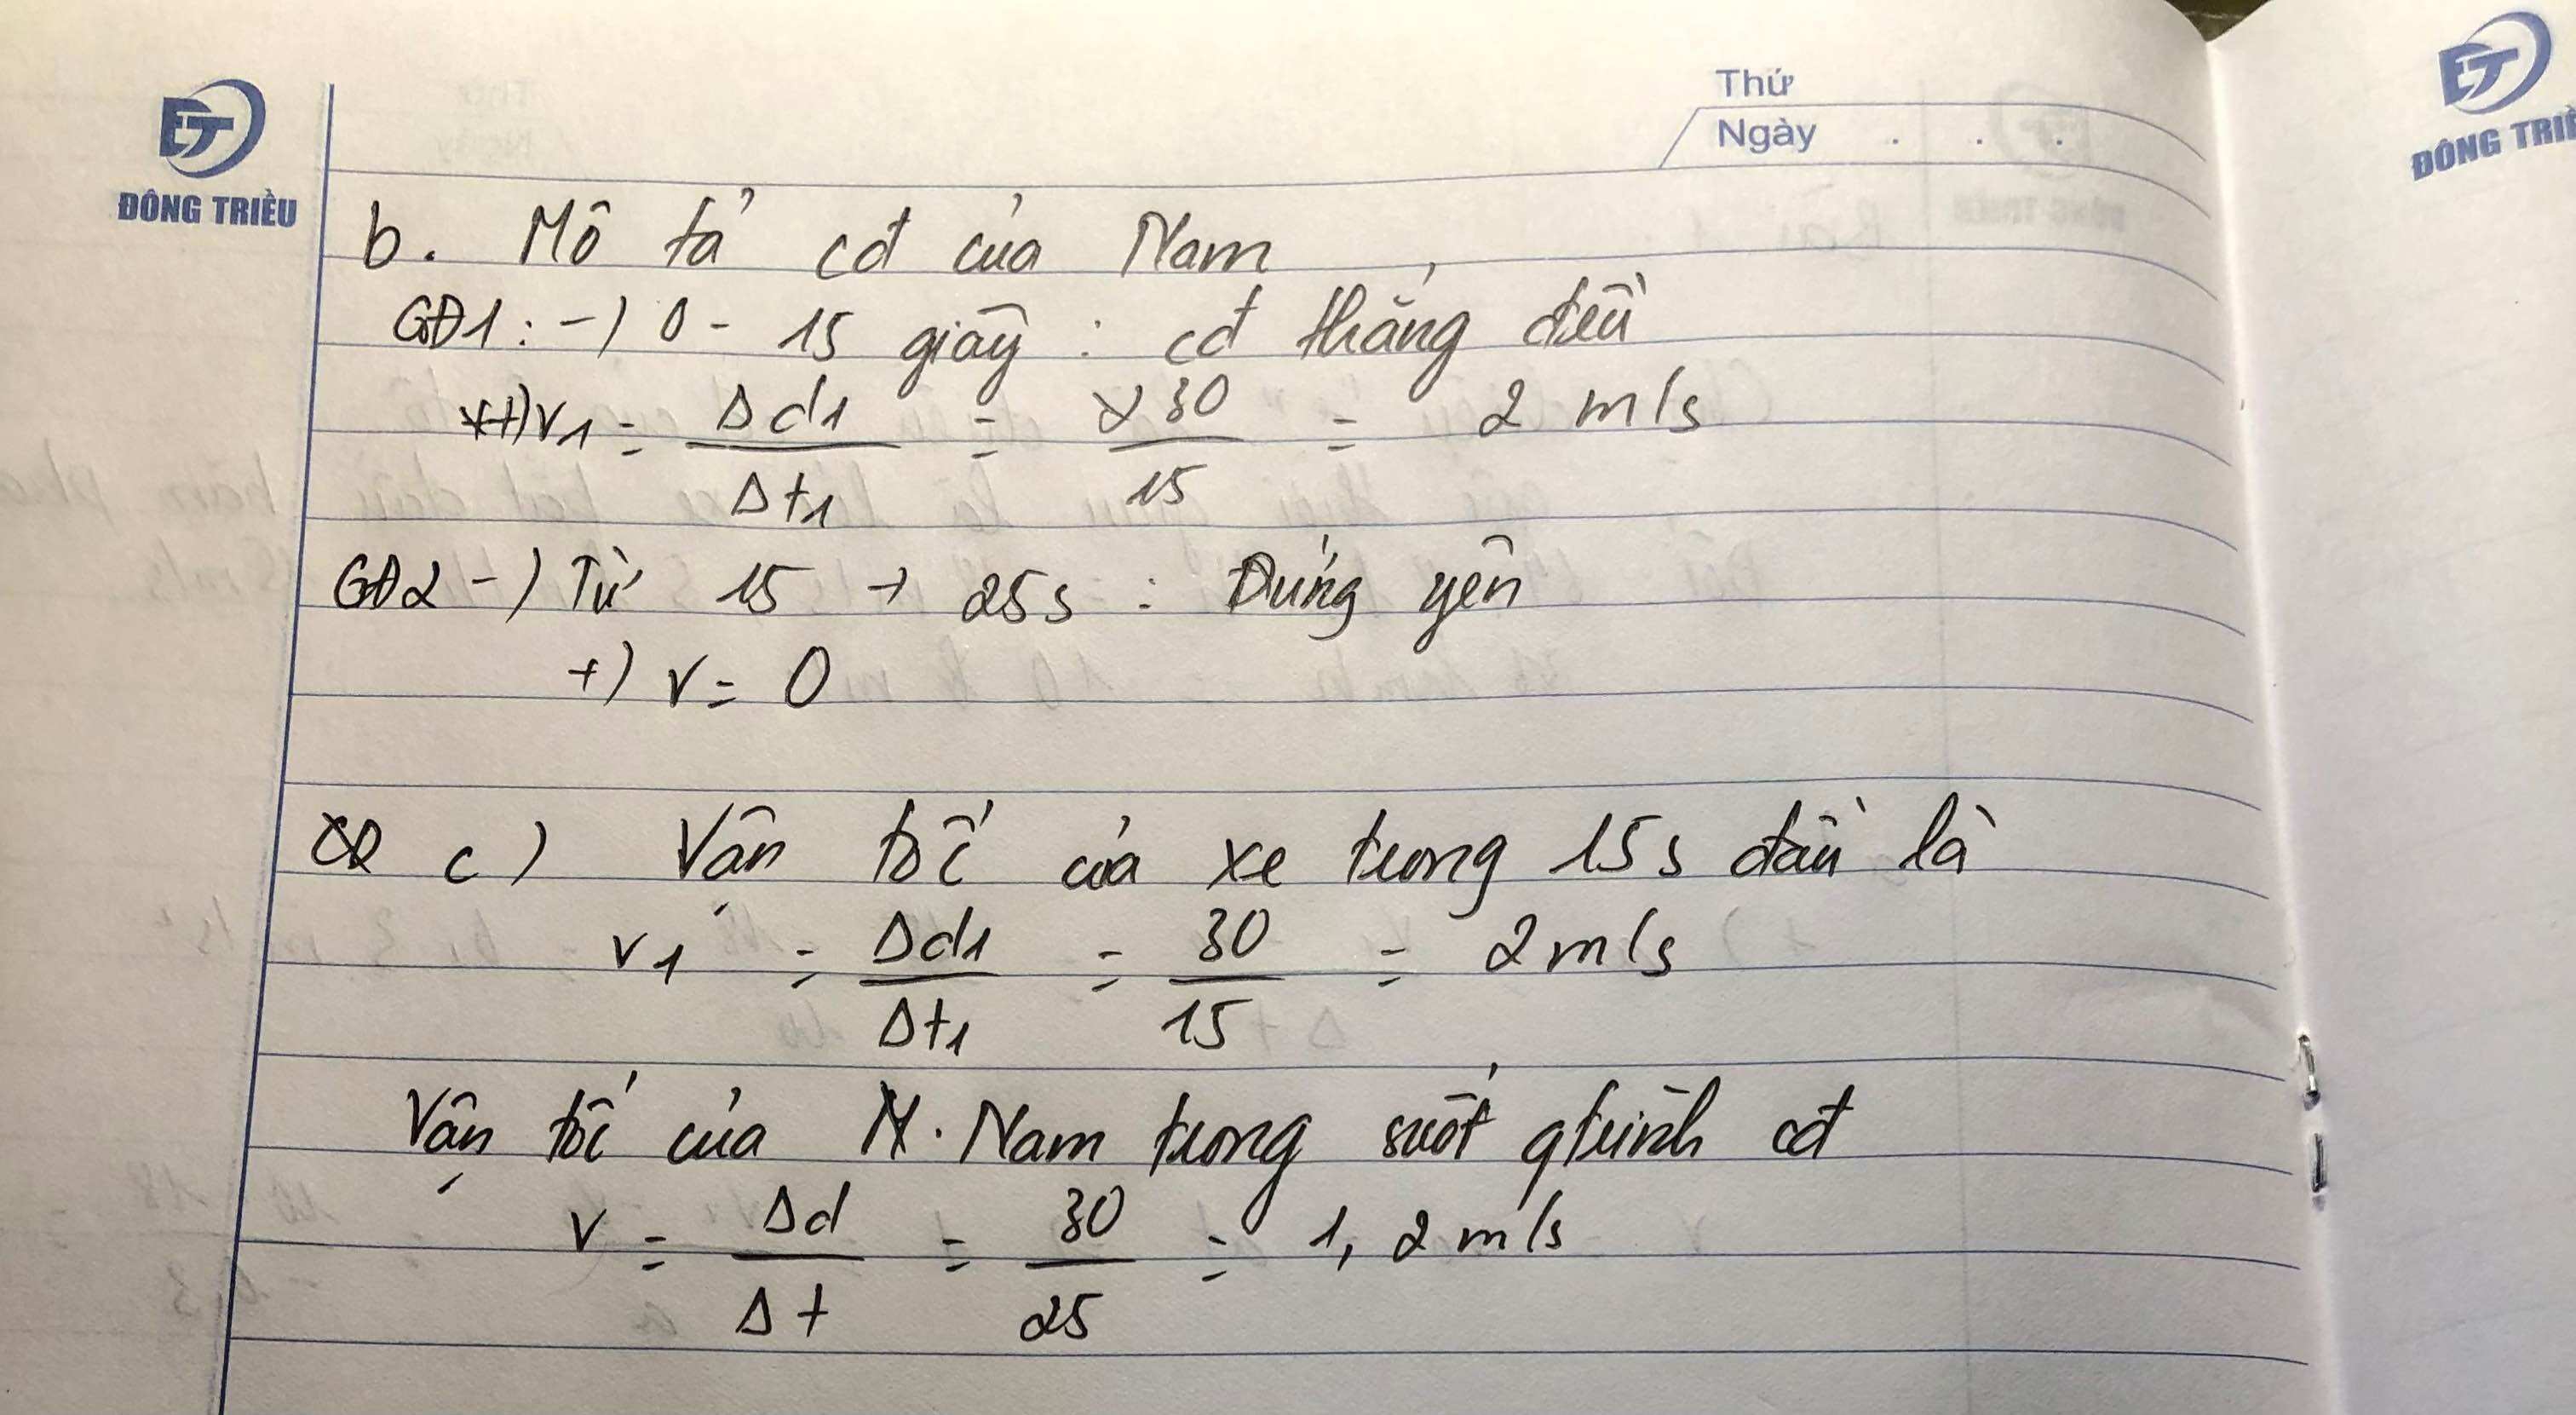 ĐÔNG TRIỀU
Thứ
Ngày . . .
ĐÔNG TRIỀ
b. Mô tả cđ của Nam
GĐ1 : -) 0 - 15 giây : cđ thẳng đều
+) v1 = Δd1 / Δt1 = 30 / 15 = 2 m/s
GĐ2 -) Từ 15 → 25s : Đứng yên
+) v = 0
c) Vận tốc của xe trong 15s đầu là
v1 = Δd1 / Δt1 = 30 / 15 = 2m/s
Vận tốc của N. Nam trong suốt qtrình cđ
v = Δd / Δt = 30 / 25 = 1,2 m/s